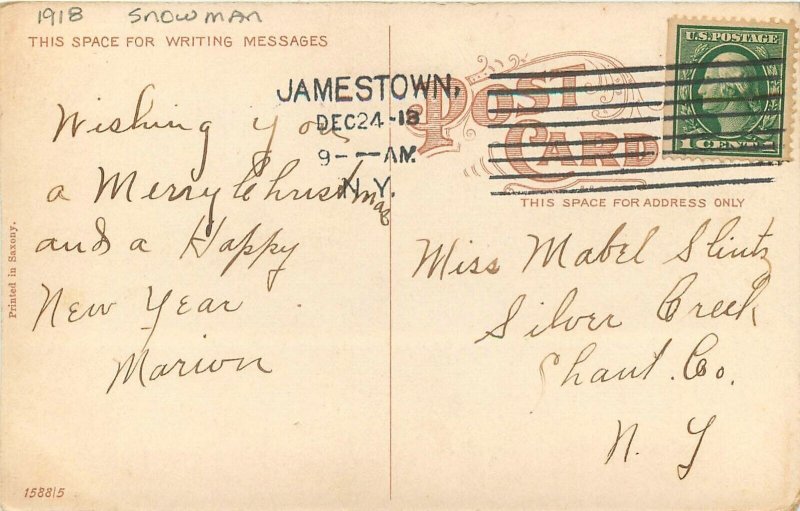 1918 Snowman
THIS SPACE FOR WRITING MESSAGES
Wishing you
a Merry Christmas
and a Happy
New Year
Marion
Printed in Saxony.
158815
U.S. POSTAGE
1 CENT 1
JAMESTOWN,
DEC 24 - 13
9 - - AM
N. Y.
POST
CARD
THIS SPACE FOR ADDRESS ONLY
Miss Mabel Slintz
Silver Creek
Chaut. Co.
N. Y